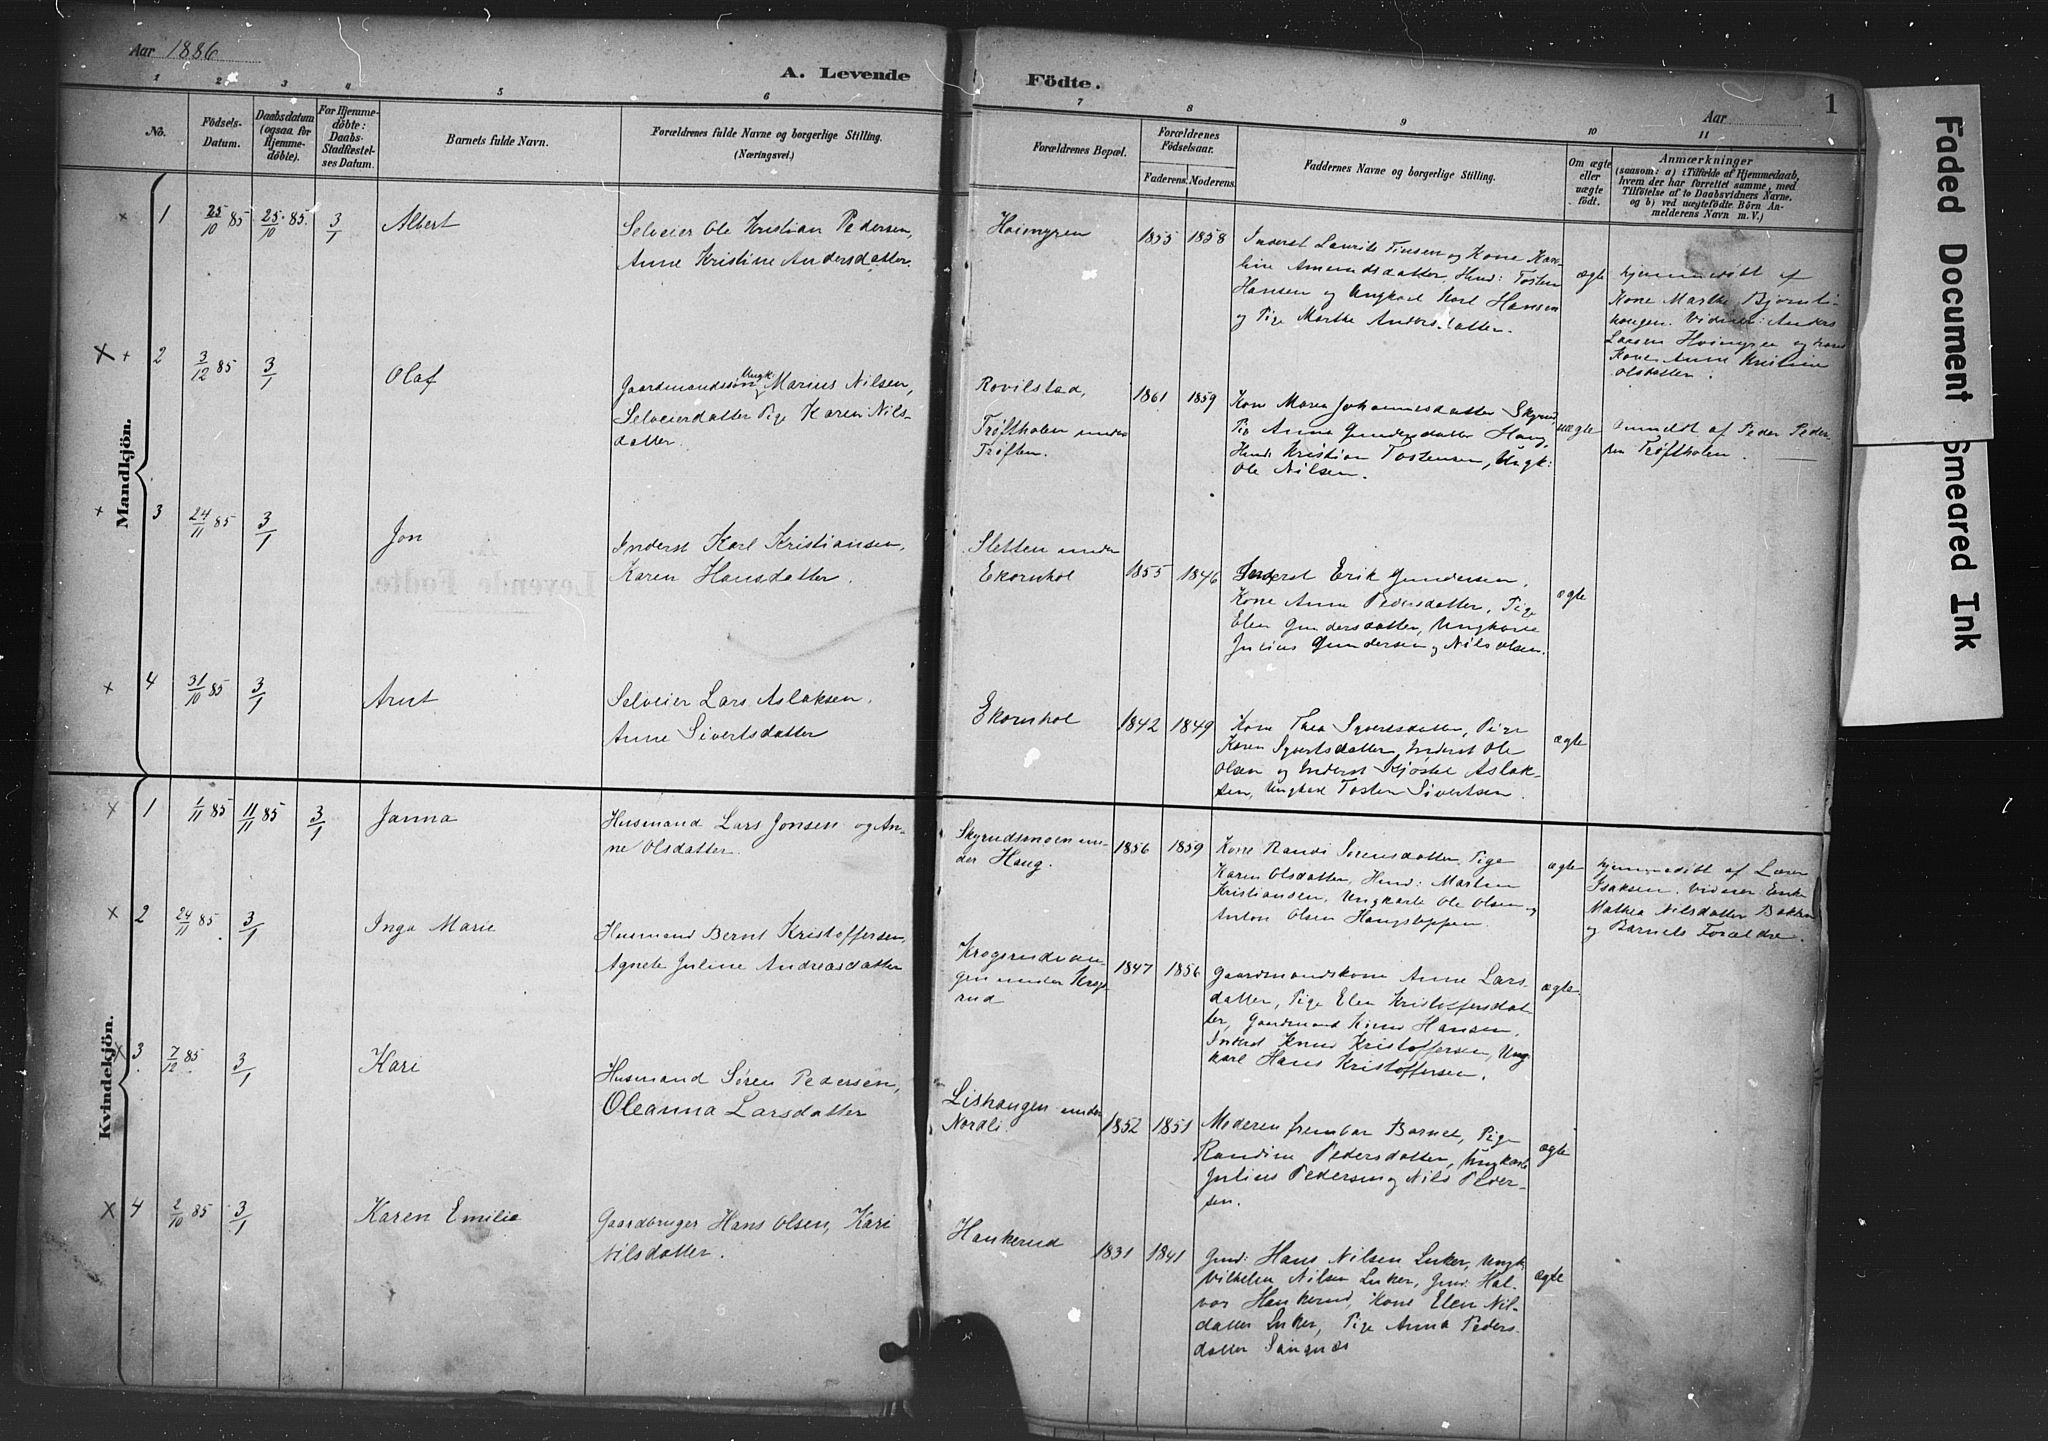 Aar 1886
A. Levende
Födte.
Aar
1
1 2 3 4 5 6 7 8 9 10 11
No.
Födsels-
Datum.
Daabsdatum
(ogsaa for
Hjemme-
döbte).
For Hjemme-
döbte:
Daabs-
Stadfæstel-
ses Datum.
Barnets fulde Navn.
Forældrenes fulde Navne og borgerlige Stilling.
(Næringsvei.)
Forældrenes Bopæl.
Forældrenes
Födselsaar.
Faderens. Moderens.
Faddernes Navne og borgerlige Stilling.
Om ægte
eller
uægte
födt.
Anmærkninger
(saasom: a) i Tilfælde af Hjemmedaab,
hvem der har forrettet samme, med
Tilföielse af to Daabsvidners Navne.
og b) ved uægtefödte Börn An-
melderens Navn m. V.)
Mandkjön.
1 25/10 85 25/10 85. 3/1 Albert
Selveier Ole Kristian Pedersen,
Anne Kristine Andersdatter.
Hoimyren
1855 1858
Inderst Laurits Tinsen og Kone Karo-
line Amundsdatter, Husm: Tosten
Hansen og Ungkarl Karl Hansen
og Pige Marthe Andersdatter.
ægte
hjemmedöbt af
Kone Marthe Bjørnli-
haugen. Vidner: Anders
Larsen Hoimyren og hans
Kone Anne Kristine
Olsdatter.
2 3/12 85 3/1 Olaf
Gaardmandssøn Ungk: Marius Nilsen,
Selveierdatter Pige Karen Nils-
datter.
Rovilstad,
Trøftholen under
Trøften.
1861 1859
Kone Maren Johannesdatter Skyrud,
Pige Anna Gundersdatter Haug,
Husm: Kristian Tostensen, Ungk:
Ole Nilsen.
uægte
Anmeldt af Peder Peder-
sen Trøftholen.
3 24/11 85 3/1 Jon
Inderst Karl Kristiansen,
Karen Hansdatter.
Sletten under
Ekornhol
1855 1846
Inderst Erik Gundersen,
Kone Anne Pedersdatter, Pige
Elen Gundersdatter, Ungkarle
Julius Gundersen og Nils Olsen.
ægte
4 31/10 85 3/1 Arnt
Selveier Lars Aslaksen,
Anne Sivertsdatter
Ekornhol
1842 1849
Kone Thea Syversdatter, Pige
Karen Syvertsdatter, Inderst Ole
Olsen og Inderst Kjøstel Aslak-
sen, Ungkarl Tosten Sivertsen.
ægte
Kvindekjön.
1 1/11 85 11/11 85 3/1 Janna
Husmand Lars Jonsen og An-
ne Olsdatter.
Skyrudsmoen un-
der Haug.
1856 1859
Kone Randi Sørensdatter, Pige
Karen Olsdatter, Husm: Martin
Kristiansen, Ungkarle Ole Olsen og
Anton Olsen Haugsloppen.
ægte
hjemmedöbt af Lærer
Isaksen. Vidner: Enke
Mathea Nilsdatter Bakken
og Barnets Forældre.
2 24/11 85 3/1 Inga Marie
Husmand Bernt Kristoffersen,
Agnete Juline Andreasdatter
Krogsrudvan-
gen under Krogs-
rud
1847 1856
Gaardmandskone Anne Lars-
datter, Pige Elen Kristoffersdat-
ter, Gaardmand Knud Hansen,
Inderst Knud Kristoffersen, Ung-
karl Hans Kristoffersen.
ægte.
3 7/12 85 3/1 Kari
Husmand Søren Pedersen,
Oleanna Larsdatter
Lishaugen under
Nordli.
1852 1851
Moderen frembar Barnet, Pige
Randine Pedersdatter, Ungkarle
Julius Pedersen og Nils Peder-
sen.
ægte
4 2/10 85 3/1 Karen Emilie
Gaardbruger Hans Olsen, Kari
Nilsdatter.
Haukerud
1831 1841
Gmd: Hans Nilsen Luker, Ungk:
Vilhelm Nilsen Luker, Gmd: Hal-
vor Haukerud, Kone Elen Nils-
datter Luker, Pige Anna Peders-
datter Sangnæs
ægte
Faded Document
Smeared Ink